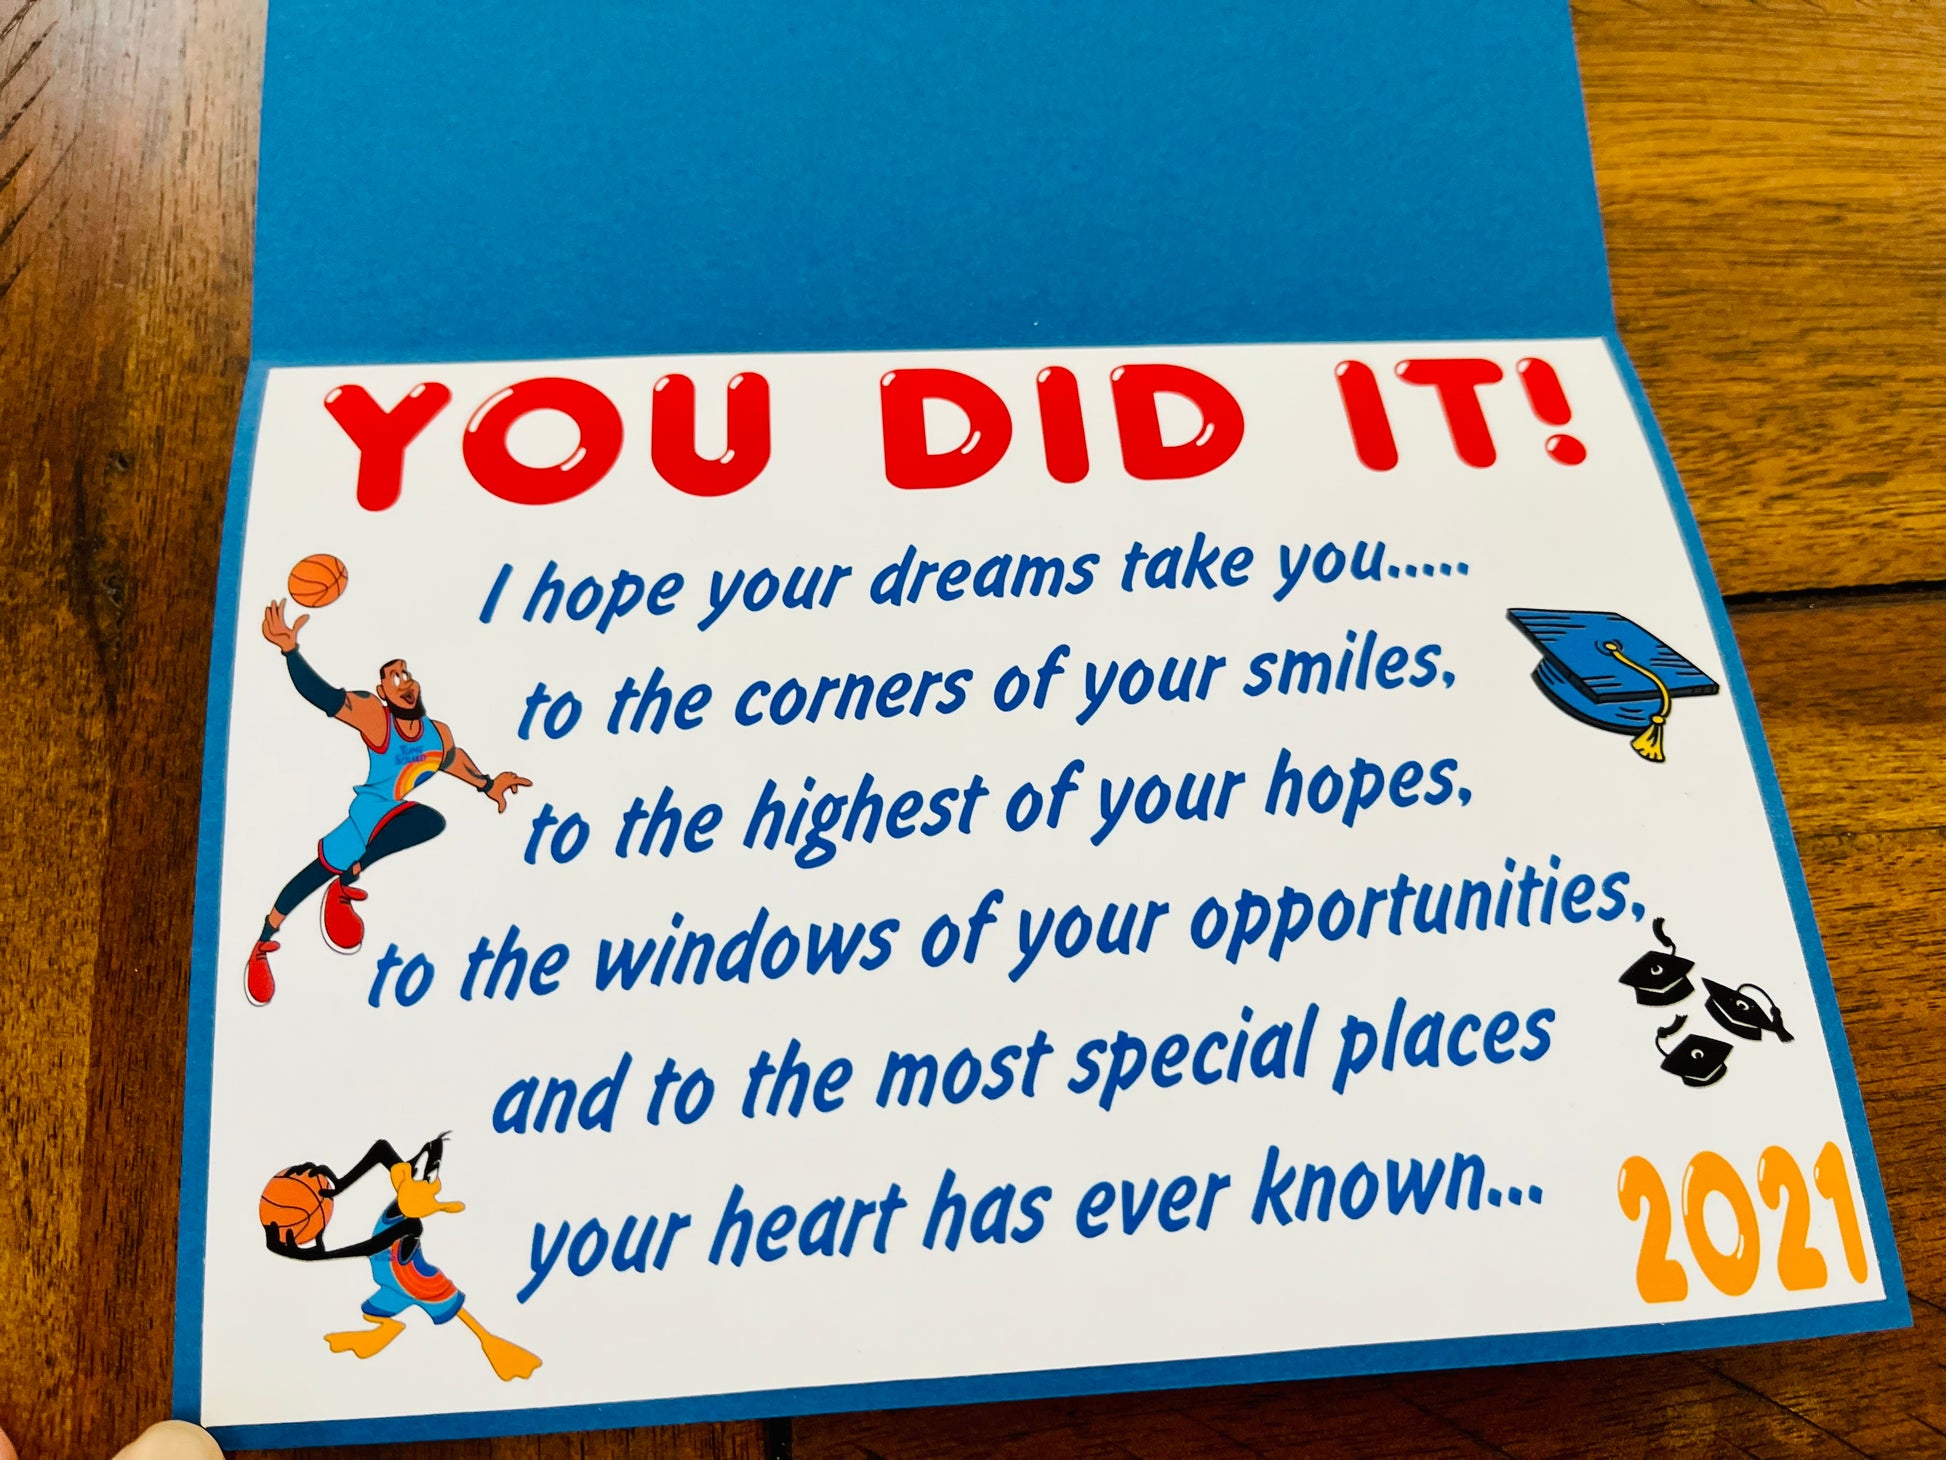 YOU DID IT!
I hope your dreams take you.....
to the corners of your smiles,
to the highest of your hopes,
to the windows of your opportunities,
and to the most special places
your heart has ever known...
TUNE
SQUAD
2021